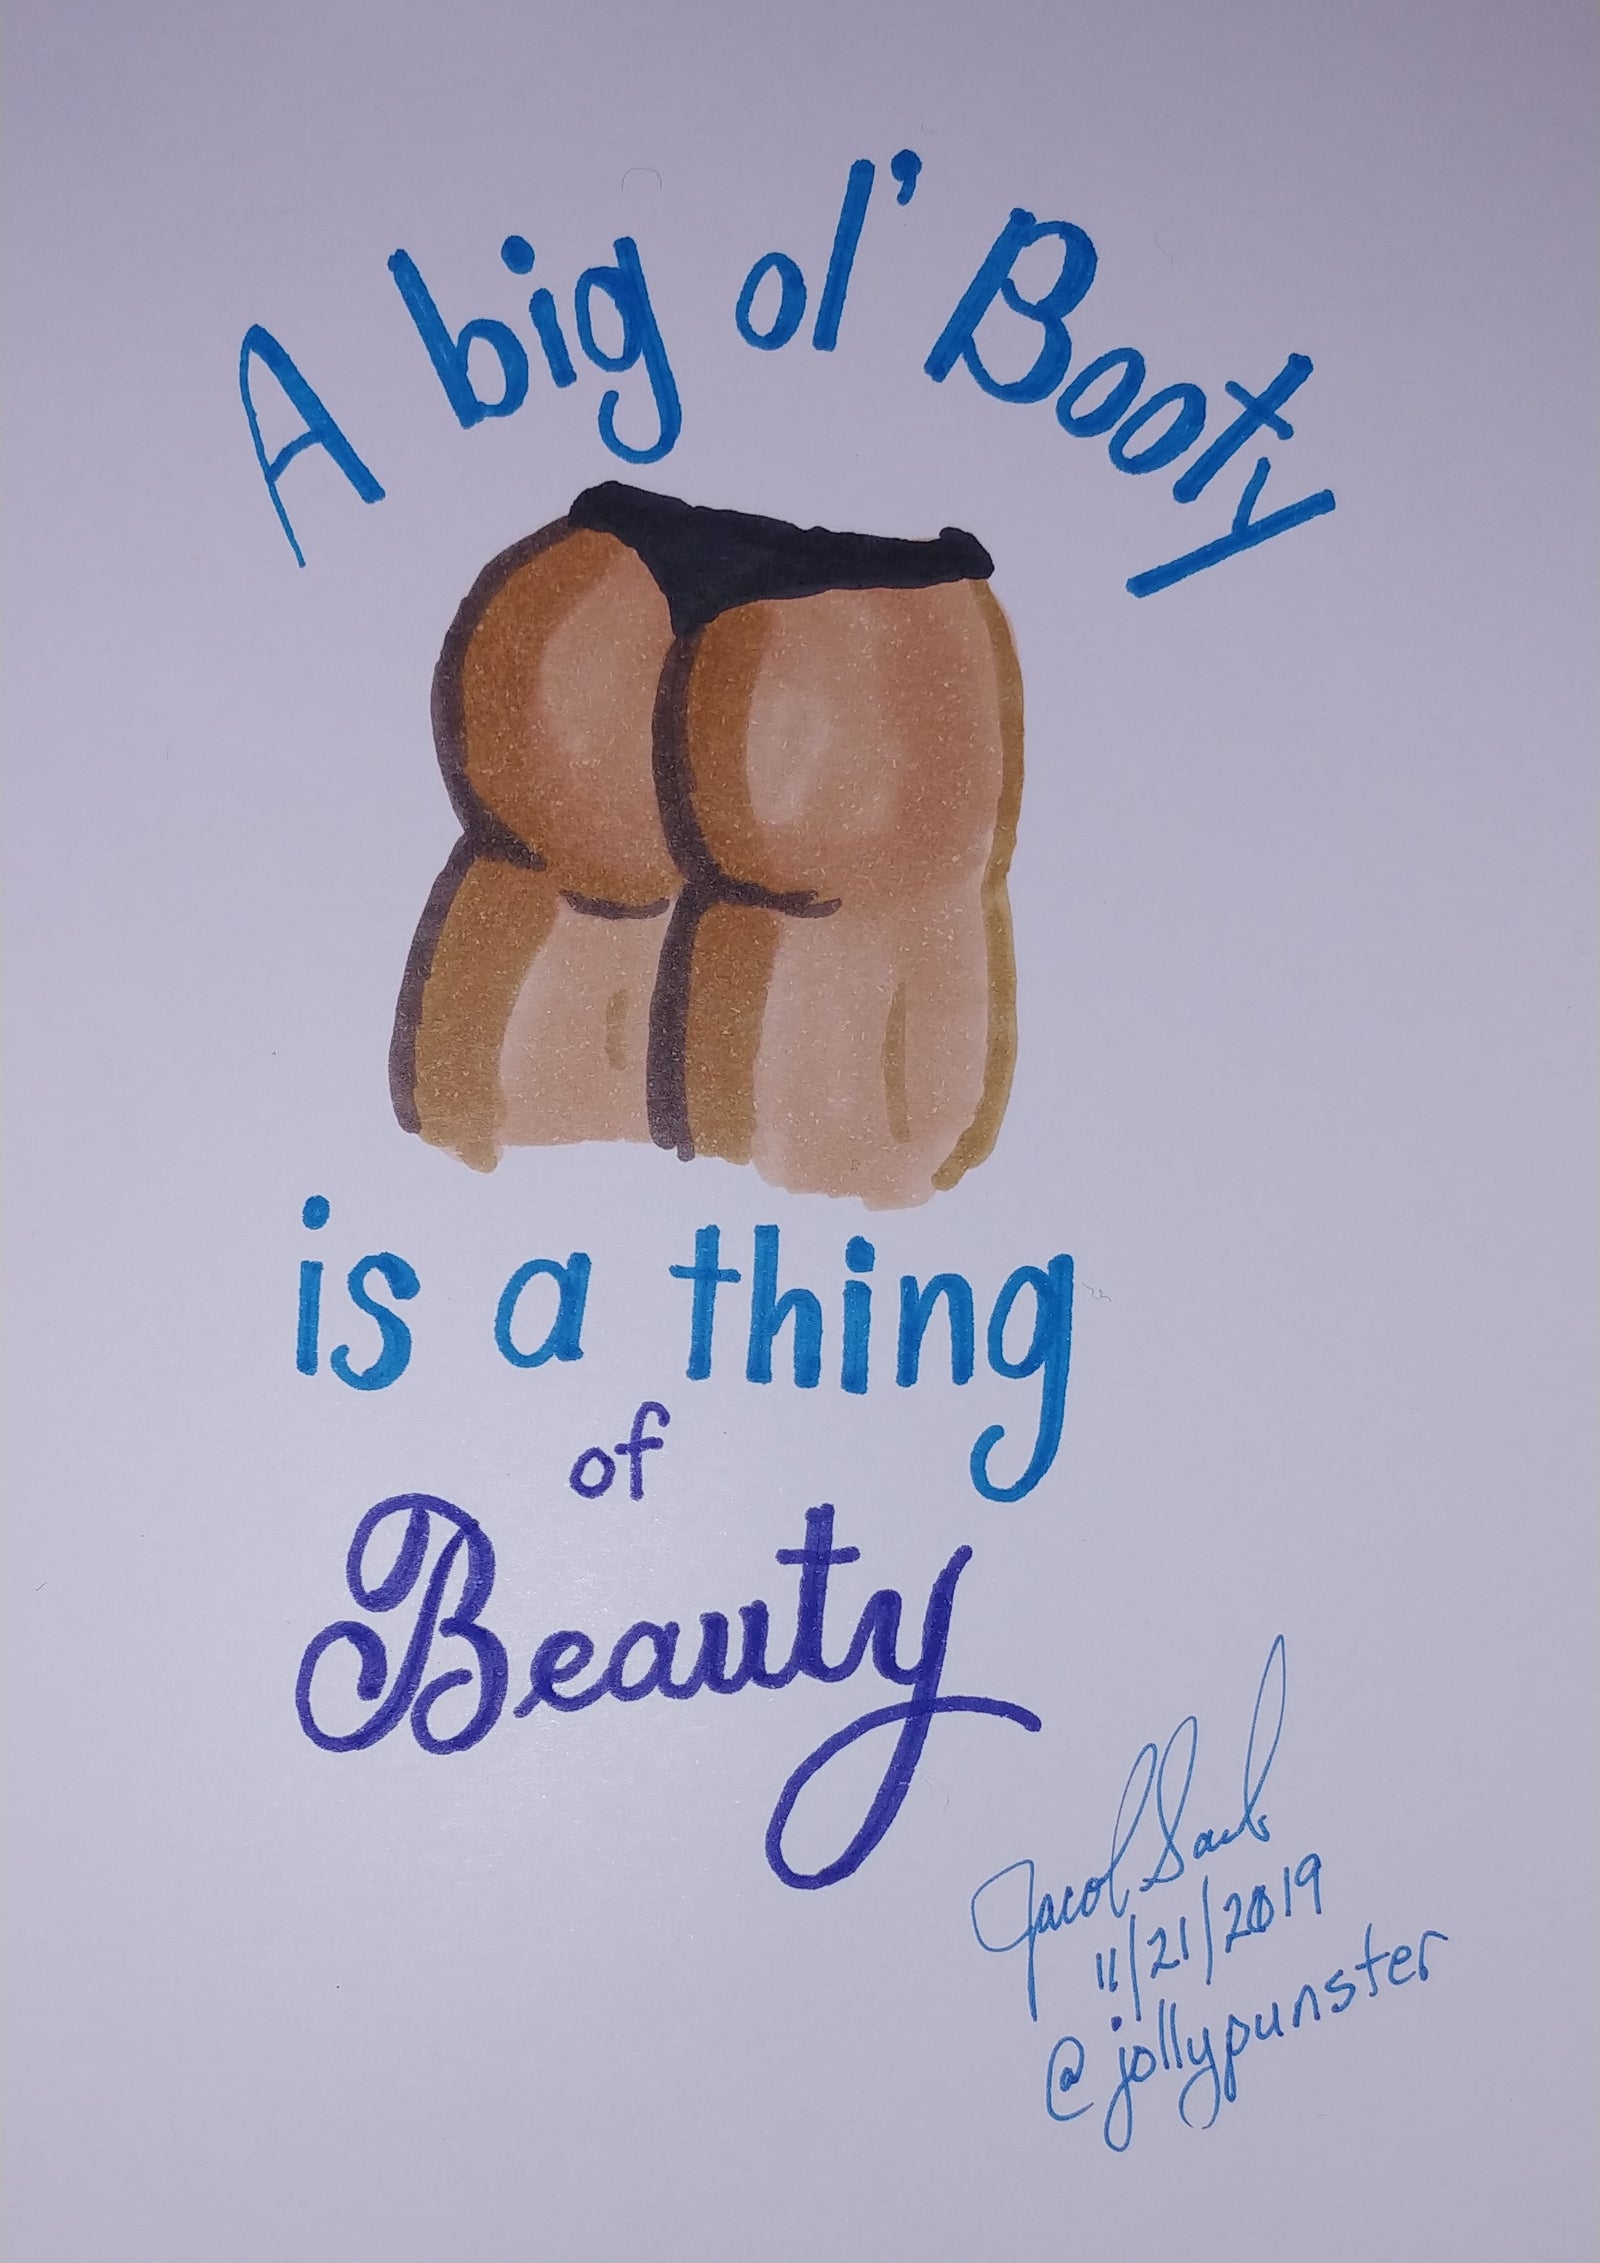 A big ol' Booty
is a thing
of
Beauty
Jacob Saub
11/21/2019
@jollypunster